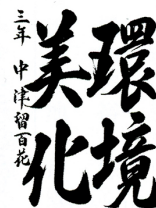 環境
美化
三年 中津留百花